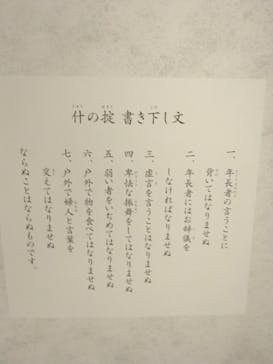 什の掟 書き下し文
一、年長者の言うことに
背いてはなりませぬ
二、年長者にはお辞儀を
しなければなりませぬ
三、虚言を言うことはなりませぬ
四、卑怯な振舞をしてはなりませぬ
五、弱い者をいぢめてはなりませぬ
六、戸外で物を食べてはなりませぬ
七、戸外で婦人と言葉を
交えてはなりませぬ
ならぬことはならぬものです。